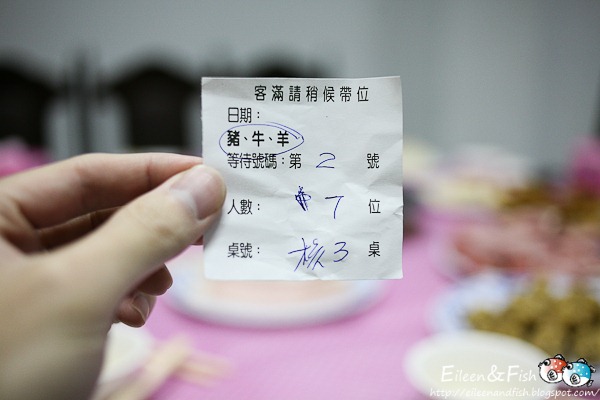 客滿請稍候帶位
日期：
豬、牛、羊
等待號碼：第 2 號
人數： 7 位
桌號： 3 桌
Eileen&Fish
http://eileenandfish.blogspot.com/